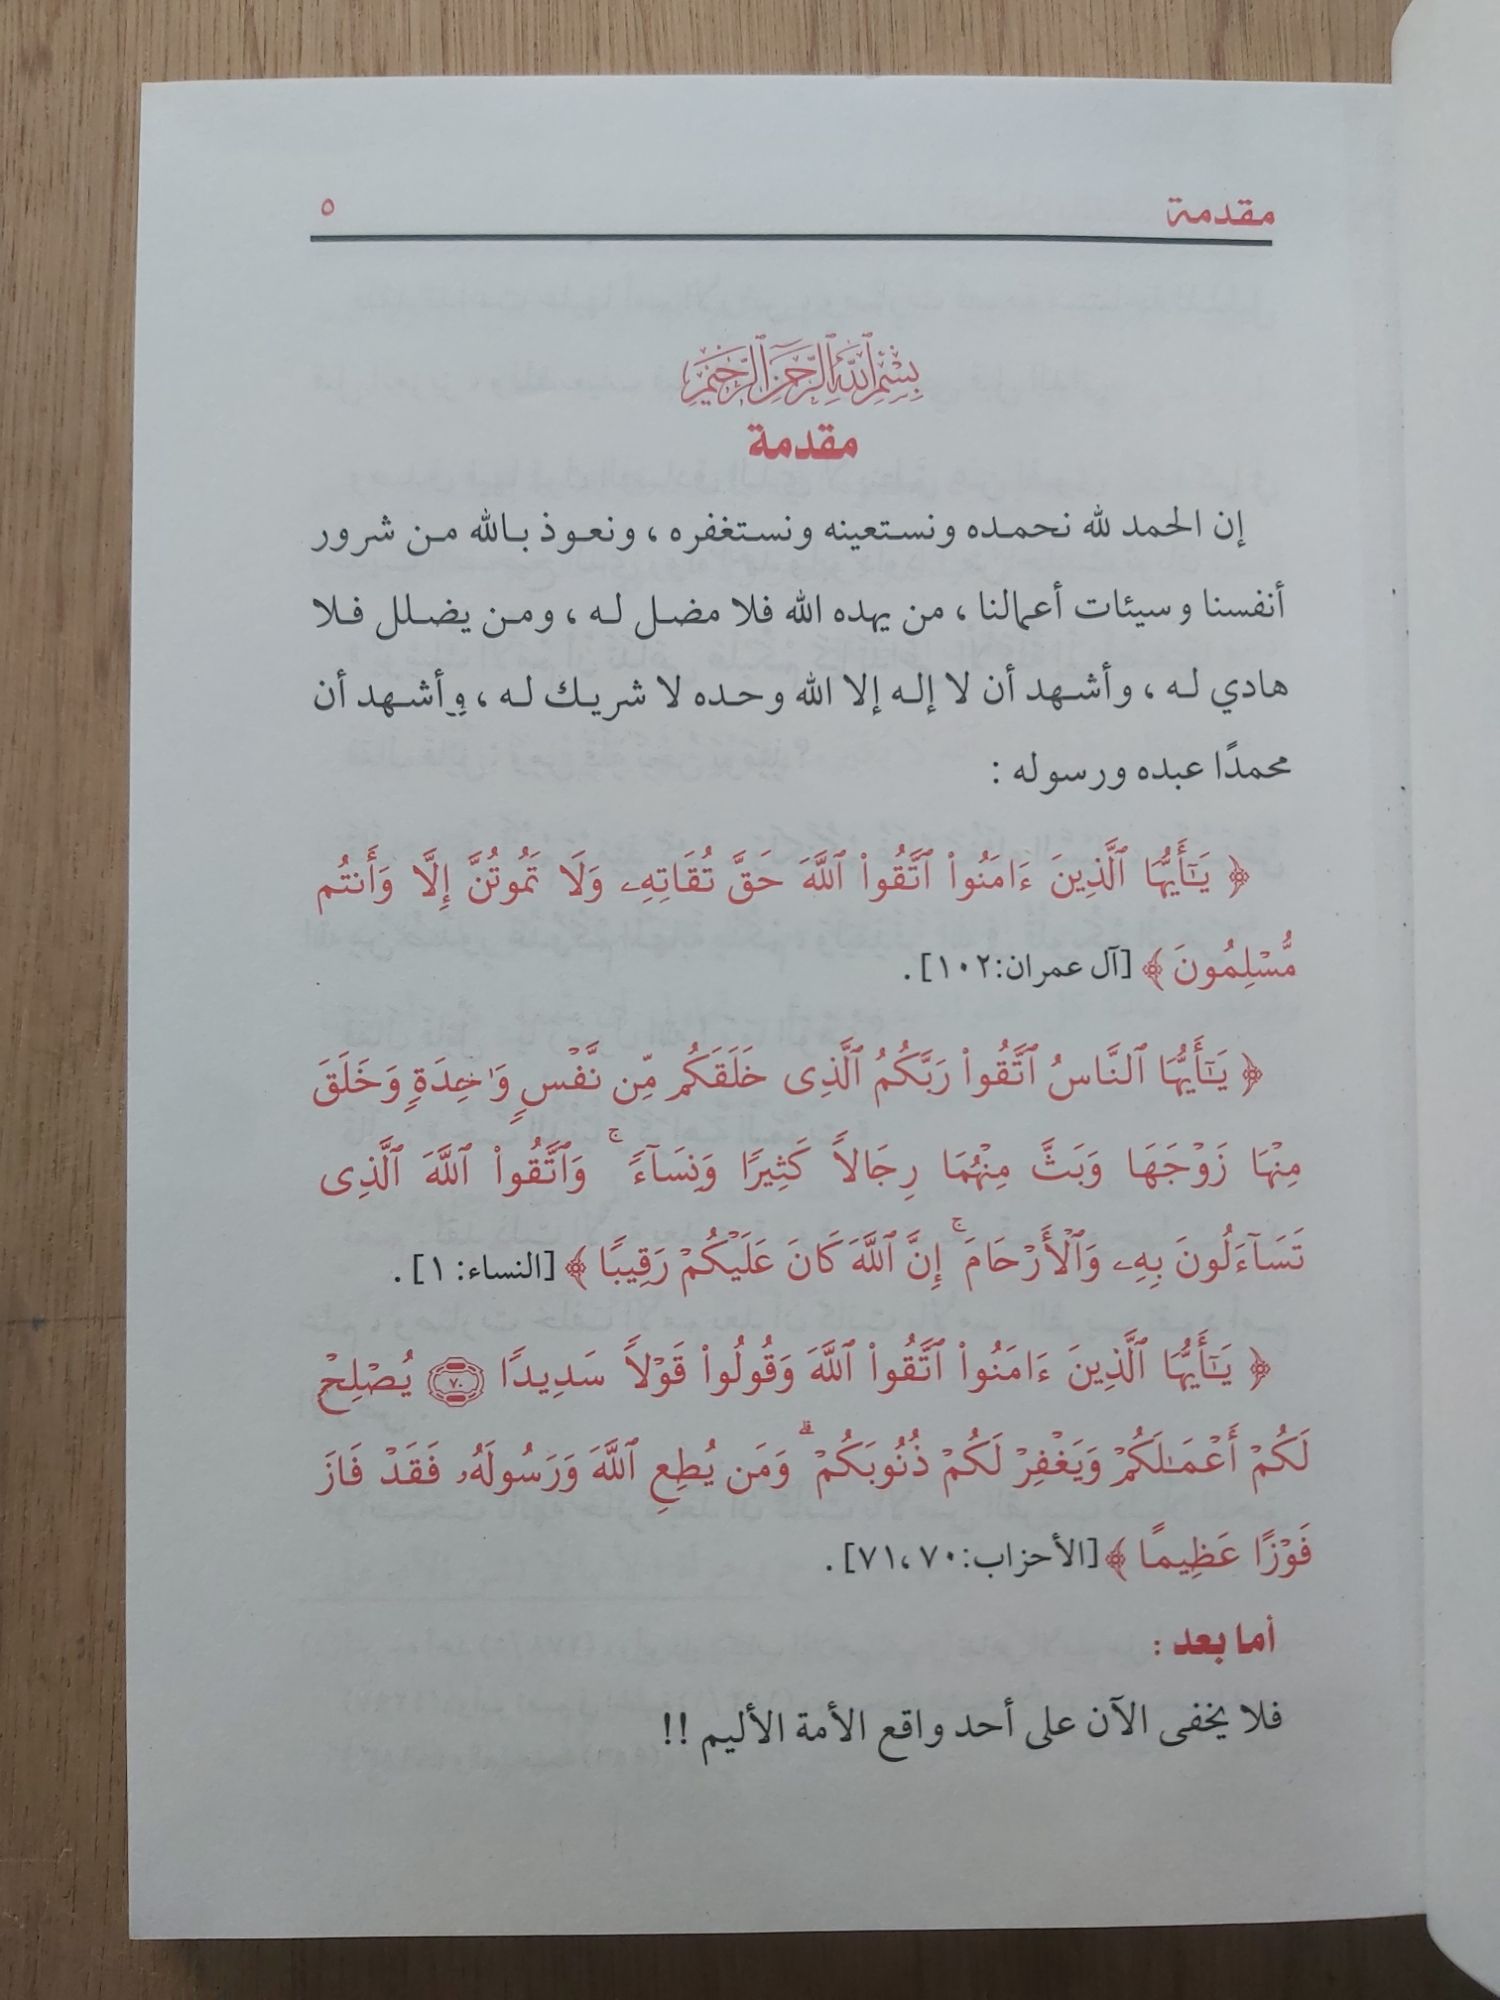 مقدمة ٥
بِسْمِ ٱللَّهِ ٱلرَّحْمَٰنِ ٱلرَّحِيمِ
مقدمة
إن الحمد لله نحمده ونستعينه ونستغفره ، ونعوذ بالله من شرور
أنفسنا وسيئات أعمالنا ، من يهده الله فلا مضل له ، ومن يضلل فلا
هادي له ، وأشهد أن لا إله إلا الله وحده لا شريك له ، وأشهد أن
محمدًا عبده ورسوله :
﴿ يَٰٓأَيُّهَا ٱلَّذِينَ ءَامَنُوا۟ ٱتَّقُوا۟ ٱللَّهَ حَقَّ تُقَاتِهِۦ وَلَا تَمُوتُنَّ إِلَّا وَأَنتُم
مُّسْلِمُونَ ﴾ [آل عمران:١٠٢] .
﴿ يَٰٓأَيُّهَا ٱلنَّاسُ ٱتَّقُوا۟ رَبَّكُمُ ٱلَّذِى خَلَقَكُم مِّن نَّفْسٍ وَٰحِدَةٍ وَخَلَقَ
مِنْهَا زَوْجَهَا وَبَثَّ مِنْهُمَا رِجَالاً كَثِيرًا وَنِسَآءً ۚ وَٱتَّقُوا۟ ٱللَّهَ ٱلَّذِى
تَسَآءَلُونَ بِهِۦ وَٱلْأَرْحَامَ ۚ إِنَّ ٱللَّهَ كَانَ عَلَيْكُمْ رَقِيبًا ﴾ [النساء: ١] .
﴿ يَٰٓأَيُّهَا ٱلَّذِينَ ءَامَنُوا۟ ٱتَّقُوا۟ ٱللَّهَ وَقُولُوا۟ قَوْلاً سَدِيدًا ٧٠ يُصْلِحْ
لَكُمْ أَعْمَٰلَكُمْ وَيَغْفِرْ لَكُمْ ذُنُوبَكُمْ ۗ وَمَن يُطِعِ ٱللَّهَ وَرَسُولَهُۥ فَقَدْ فَازَ
فَوْزًا عَظِيمًا ﴾ [الأحزاب:٧٠ ،٧١] .
أما بعد :
فلا يخفى الآن على أحد واقع الأمة الأليم !!